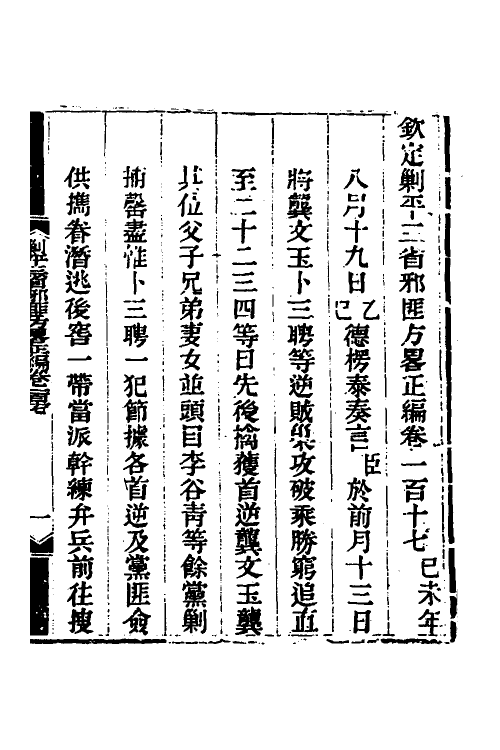 欽定剿平三省邪匪方畧正編卷一百十七 己未年
八月十九日乙巳德楞泰奏言臣於前月十三日
將龔文玉卜三聘等逆賊巢攻破乘勝窮追直
至二十二三四等日先後擒獲首逆龔文玉龔
其位父子兄弟妻女並頭目李谷青等餘黨剿
捕罄盡惟卜三聘一犯節據各首逆及黨匪僉
供攜眷潛逃後窖一帶當派幹練弁兵前往搜
剿平三省邪匪方畧正編卷一百十七 一